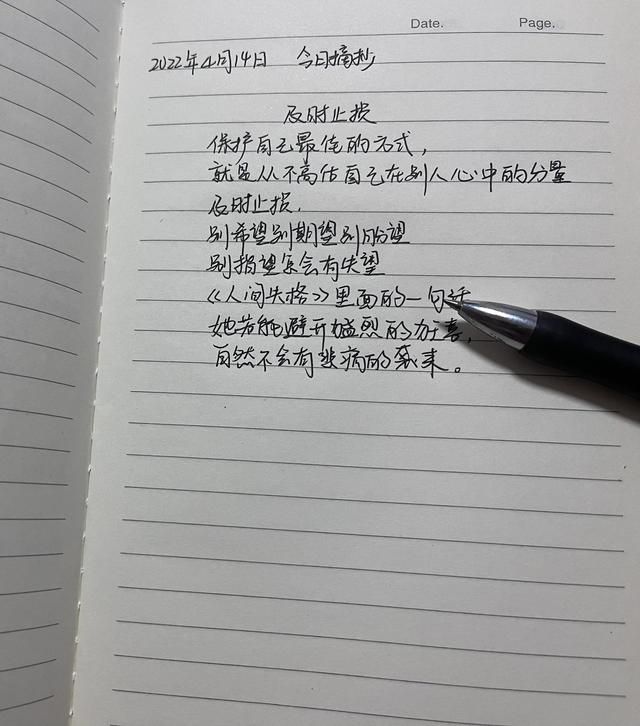 Date. Page.
2022年4月14日 今日摘抄
及时止损
保护自己最佳的方式,
就是从不高估自己在别人心中的分量
及时止损.
别希望别期望别盼望
别指望怎会有失望
《人间失格》里面的一句话
她若能避开猛烈的狂喜,
自然不会有悲痛的袭来。